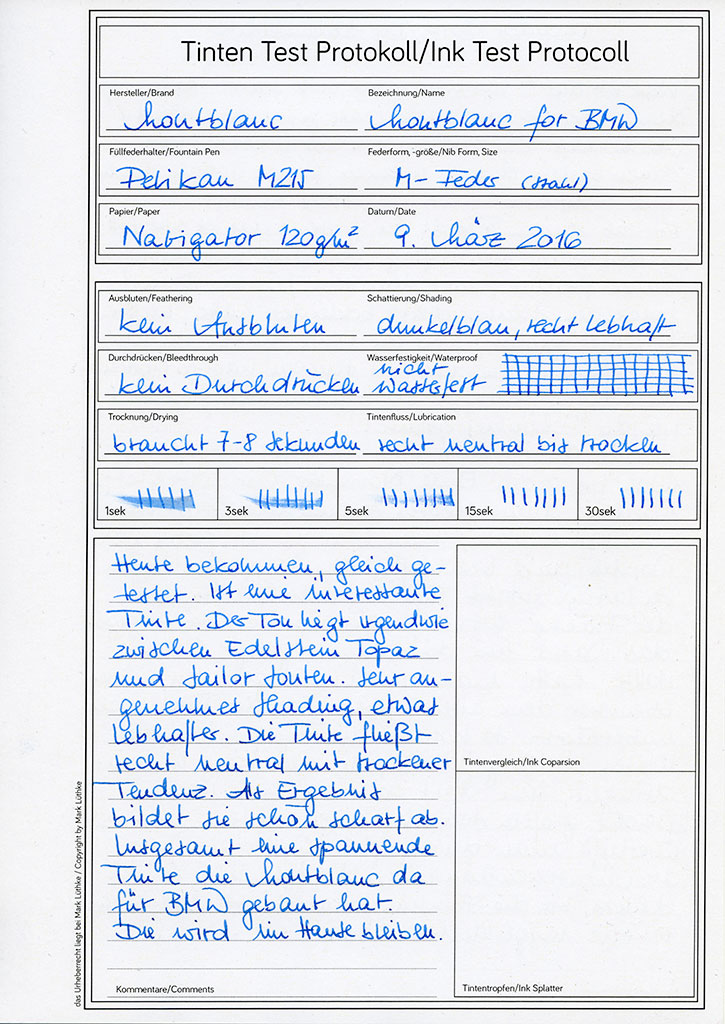 Tinten Test Protokoll/Ink Test Protocoll
Hersteller/Brand Bezeichnung/Name
Montblanc Montblanc for BMW
Füllfederhalter/Fountain Pen Federform, -größe/Nib Form, Size
Pelikan M215 M-Feder (Stahl)
Papier/Paper Datum/Date
Navigator 120g/m² 9. März 2016
Ausbluten/Feathering Schattierung/Shading
kein Ausbluten dunkelblau, recht lebhaft
Durchdrücken/Bleedthrough Wasserfestigkeit/Waterproof
kein Durchdrücken nicht
wasserfest
Trocknung/Drying Tintenfluss/Lubrication
braucht 7-8 Sekunden recht neutral bis trocken
1sek 3sek 5sek 15sek 30sek
Heute bekommen, gleich ge-
testet. Ist eine interessante
Tinte. Der Ton liegt irgendwie
zwischen Edelstein Topaz
und Sailor Souten. Sehr an-
genehmes Shading, etwas
lebhafter. Die Tinte fließt
recht neutral mit trockener
Tendenz. Als Ergebnis
bildet sie schön scharf ab.
Insgesamt eine spannende
Tinte die Montblanc da
für BMW gebaut hat.
Die wird im Hause bleiben.
Kommentare/Comments
Tintenvergleich/Ink Coparsion
Tintentropfen/Ink Splatter
das Urheberrecht liegt bei Mark Lüthke / Copyright by Mark Lüthke